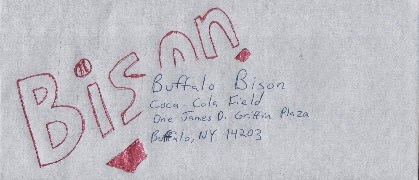 Bison
Buffalo Bison
Coca-Cola Field
One James D. Griffin Plaza
Buffalo, NY 14203